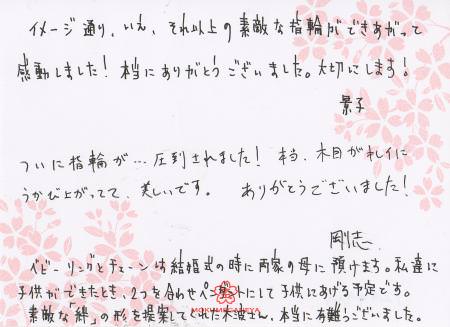 イメージ通り、いえ、それ以上の素敵な指輪ができあがって
感動しました！本当にありがとうございました。大切にします！
景子
ついに指輪が…圧倒されました！本当、木目がキレイに
うかび上がってて、美しいです。ありがとうございました！
剛志
ベビーリングとチェーンは結婚式の時に両家の母に預けます。私達に
子供ができたとき、2つを合わせペンダントにして子供にあげる予定です。
素敵な「絆」の形を提案してくれた さん、本当に有難うございました。